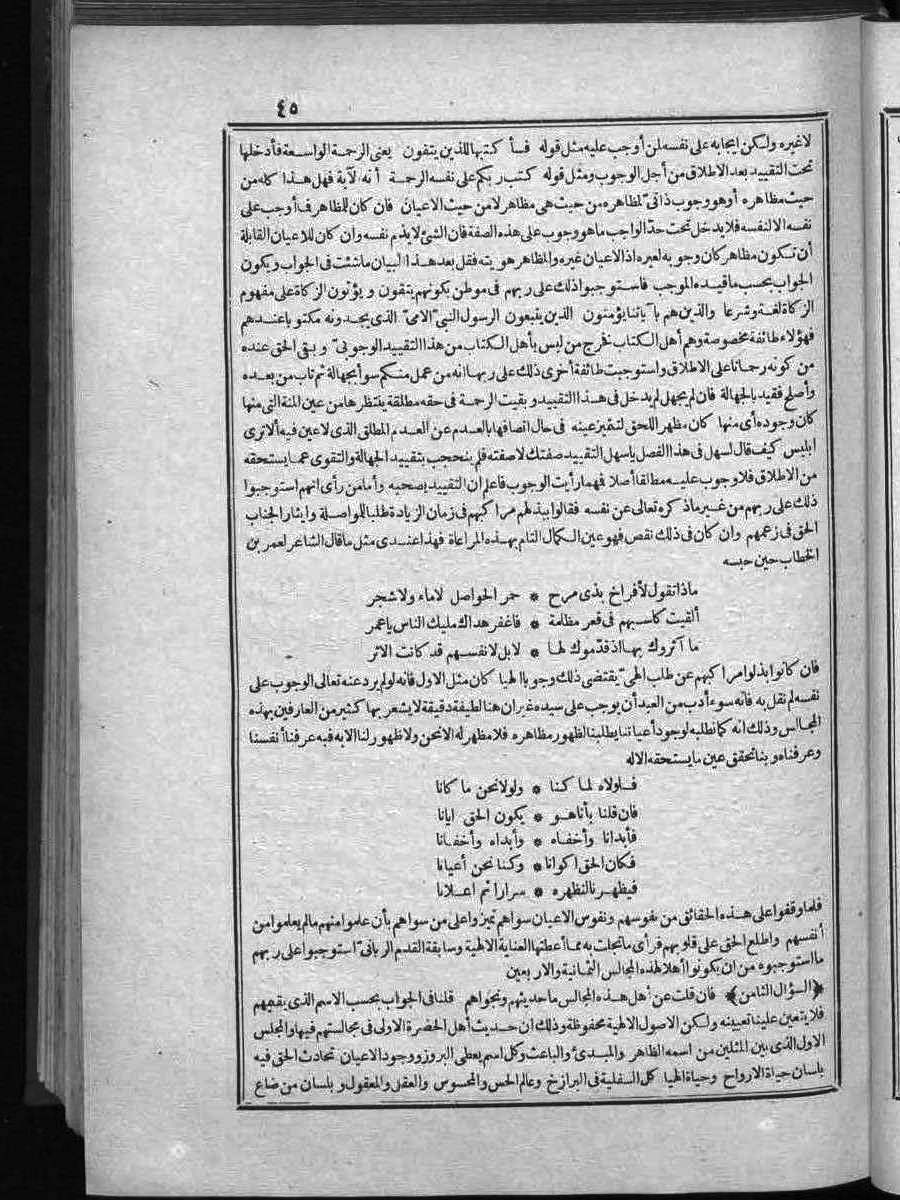 ٤٥
لاغيره ولكن ايجابه على نفسه لمن أوجب عليه مثل قوله فسأ كتبها للذين يتقون يعنى الرحمة الواسعة فأدخلها
تحت التقييد بعد الاطلاق من أجل الوجوب ومثل قوله كتب ربكم على نفسه الرحمة أنه الآية فهل هذا كله من
حيث مظاهره أو هو وجوب ذاتى لمظاهره من حيث هى مظاهر لا من حيث الاعيان فان كان للظاهر فأوجب على
نفسه الا لنفسه فلا يدخل تحت حد الواجب ما هو وجوب على هذه الصفة فان الشئ لا يذم نفسه وان كان للاعيان القابلة
أن تكون مظاهر كان وجوبه لغيره اذ الاعيان غيره والمظاهر هويته فقل بعد هذا البيان ما شئت فى الجواب ويكون
الجواب بحسب ما قيده الموجب فاستوجبوا ذلك على ربهم فى موطن بكونهم يتقون ويؤتون الزكاة على مفهوم
الزكاة لغة وشرعا والذين هم بآياتنا يؤمنون الذين يتبعون الرسول النبى الامى الذى يجدونه مكتوبا عندهم
فهؤلاء طائفة مخصوصة وهم أهل الكتاب نخرج من ليس بأهل الكتاب من هذا التقييد الوجوبى وبقى الحق عنده
من كونه رحمانا على الاطلاق واستوجبت طائفة أخرى ذلك على ربها انه من عمل منكم سوأ بجهالة ثم تاب من بعده
وأصلح فقيد بالجهالة فان لم يجهل لم يدخل فى هذا التقييد وبقيت الرحمة فى حقه مطلقة ينتظرها من عين المنة التى منها
كان وجوده أى منها كان مظهر اللحق لتتميز عينه فى حال اتصافها بالعدم عن العدم المطلق الذى لا عين فيه ألا ترى
ابليس كيف قال لسهل فى هذا الفصل ياسهل التقييد صفتك لا صفته فلم ينحجب بتقييد الجهالة والتقوى عما يستحقه
من الاطلاق فلا وجوب عليه مطلقا أصلا فمهما رأيت الوجوب فاعلم ان التقييد يصحبه وأما من رأى انهم استوجبوا
ذلك على ربهم من غير ما ذكره تعالى عن نفسه فقالوا ببذلهم مراكبهم فى زمان الزيادة طلبا للمواصلة وايثار الجناب
الحق فى زعمهم وان كان فى ذلك نقص فهو عين الكمال التام بهذه المراعاة فهذا عندى مثل ما قال الشاعر لعمر بن
الخطاب حين حبسه
ماذا تقول لأفراخ بذى مرح * حمر الحواصل لاماء ولا شجر
ألقيت كاسبهم فى قعر مظلمة * فاغفر هداك مليك الناس ياعمر
ما آثروك بها اذ قدموك لها * لا بل لانفسهم قد كانت الاثر
فان كانوا بذلوا مراكبهم عن طلب الهى يقتضى ذلك وجوبا الهيا كان مثل الاول فانه لو لم يرد عنه تعالى الوجوب على
نفسه لم نقل به فانه سوء أدب من العبد أن يوجب على سيده غير ان هنا لطيفة دقيقة لا يشعر بها كثير من العارفين بهذه
المجالس وذلك انه كما نطلبه لوجود أعياننا يطلبنا لظهور مظاهره فلا مظهر له الا نحن ولا ظهور لنا الا به فبه عرفنا أنفسنا
وعرفناه وبنا تحقق عين ما يستحقه الاله
فلولاه لما كنا * ولولا نحن ما كانا
فان قلنا بأنا هو * يكون الحق ايانا
فأبدانا وأخفاه * وأبداه وأخفانا
فكان الحق اكوانا * وكنا نحن أعيانا
فيظهرنا لنظهره * سرارا ثم اعلانا
فلما وقفوا على هذه الحقائق من نفوسهم ونفوس الاعيان سواهم تميزوا على من سواهم بأن علموا منهم مالم يعلموا من
أنفسهم واطلع الحق على قلوبهم فرأى ما تجلت به مما أعطتها العناية الالهية وسابقة القدم الربانى استوجبوا على ربهم
ما استوجبوه من ان يكونوا أهلا لهذه المجالس الثمانية والاربعين
﴿السؤال الثامن﴾ فان قلت عن أهل هذه المجالس ما حديثهم ونجواهم قلنا فى الجواب بحسب الاسم الذى يقيمهم
فلا يتعين علينا تعيينه ولكن الاصول الالهية محفوظة وذلك ان حديث أهل الحضرة الاولى فى مجالستهم فيها والمجلس
الاول الذى بين المثلين من اسمه الظاهر والمبدئ والباعث وكل اسم يعطى البروز ووجود الاعيان تحادث الحق فيه
بلسان حياة الارواح وحياة الهياكل السفلية فى البرازخ وعالم الحس والمحسوس والعقل والمعقول وبلسان من ضاع